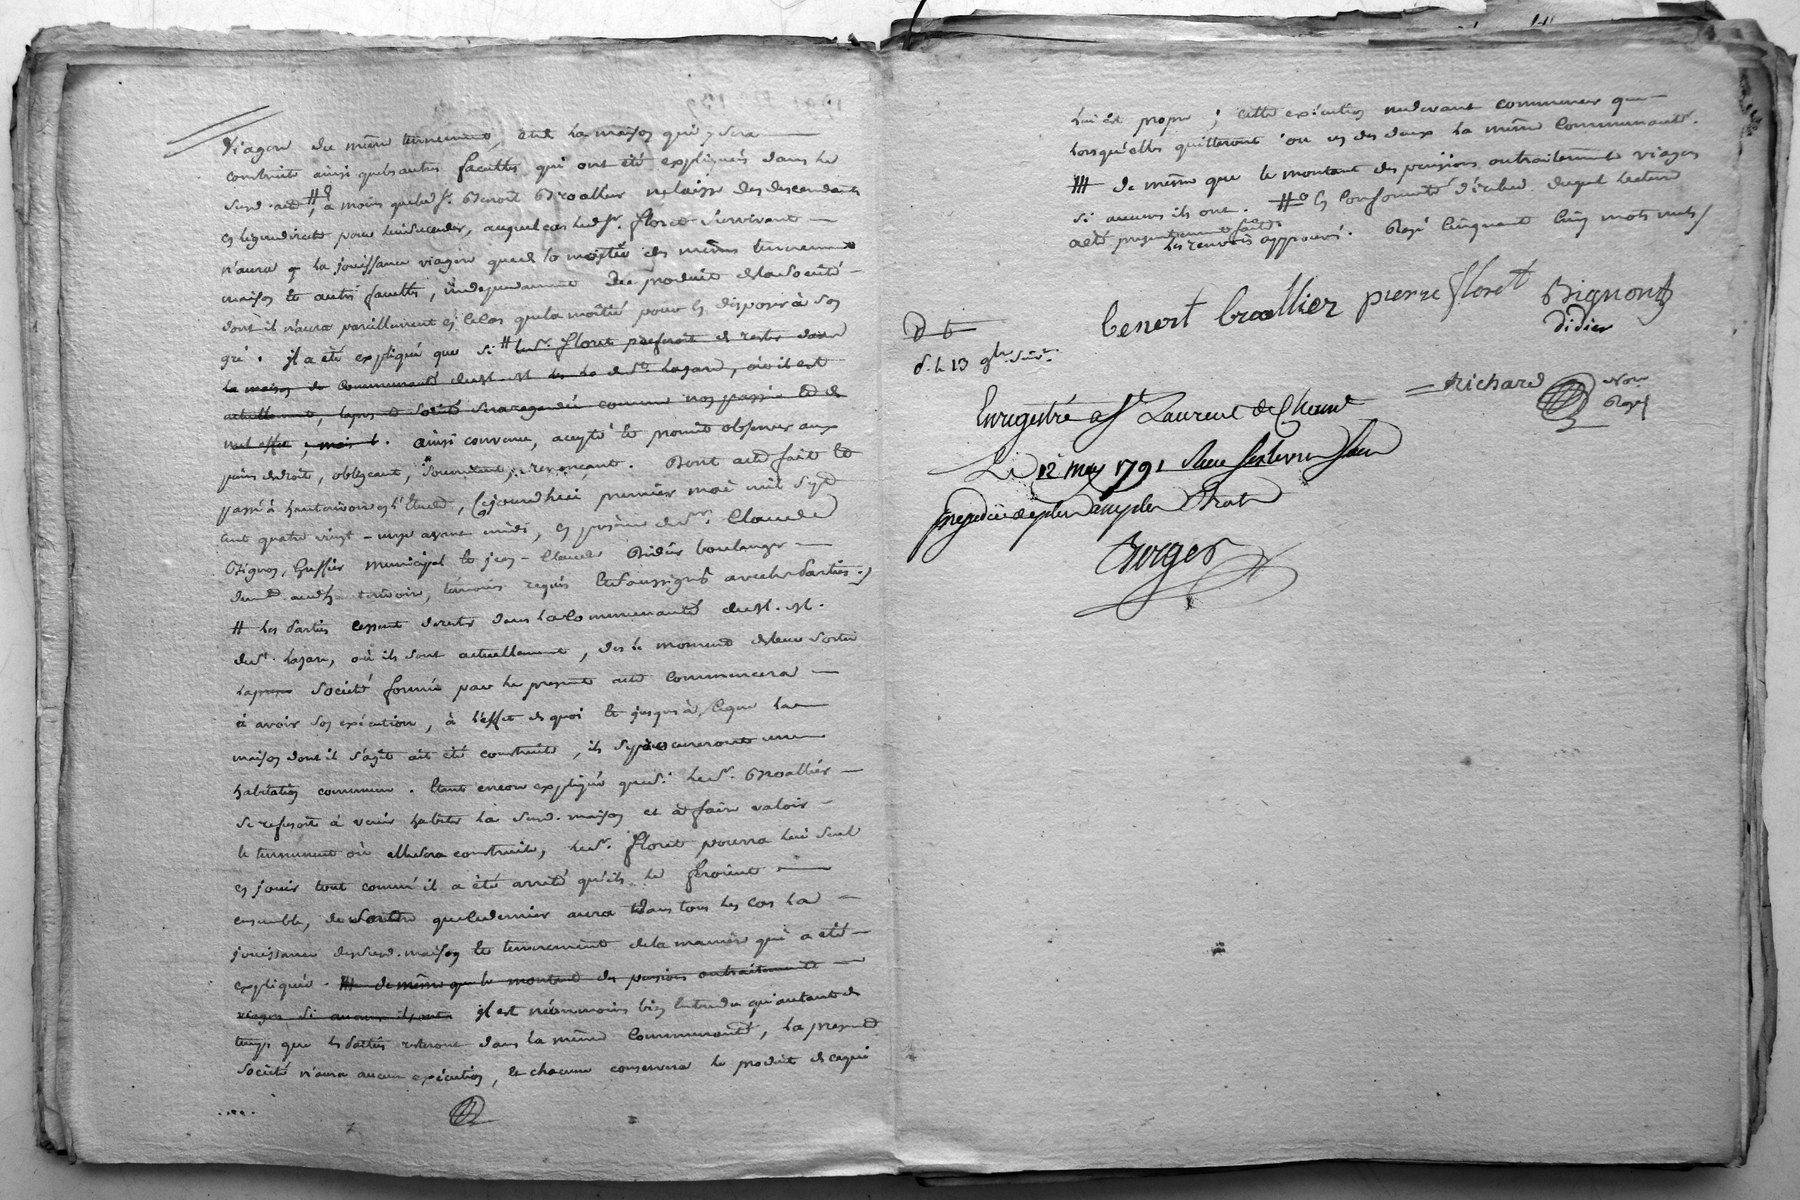 viagere du même tennement, et de la maison qui y sera
construite ainsi que les autres facultés qui ont été expliqués dans le
surd. acte #, à moins que led. sr. Benoit Broallier ne laisse des descendants
en ligne directe pour lui succeder, auquel cas led. sr. floret survivant
n'aura q la jouissance viagere que de la moitié des mêmes tennement
maison et autres facultés, independament du produit de la société
dont il n'aura pareillement en ce cas que la moitié pour en disposer à son
gré. il a été expliqué que si # le sr. floret preferoit de rester dans
la maison de communauté de M. M. de St. Lazare, où il est
actuellement, la société sera regardée comme non passée et de
nul effet, mais. ainsi convenu, accepté et promis observer aux
peines de droit, obligeant, soumettant, renonçant. Dont acte fait et
passé à hauterivoire en l'Etude, cejourd'hui premier mai mil sept
cent quatre vingt-onze avant midi, en présence de sr. Claude
Bignon, Greffier municipal et jean-Claude Didier boulanger
dud. hauterivoire, témoins requis et soussignés avec les Parties./
# les Parties cessent de rester dans la communauté de M. M.
de St. Lazare, où ils sont actuellement, des le moment de leur sortie
la societé formée par le present acte commencera
à avoir son exécution, à l'effet de quoi et jusqu'à ceque la
maison dont il s'agit ait été construite, ils se procureront une
habitation commune. Etant encore expliqué que si le sr. Broallier
se refusoit à venir habiter la surd. maison et à faire valoir
le tennement où elle sera construite, le sr. floret pourra lui seul
en jouir tout comm'il a été arrêté qu'ils le feroient
ensemble, de sorte que ce dernier aura dans tous les cas la
jouissance des surd. maison et tennement de la maniere qui a été
expliquée. # de même que le montant des pensions ou traitements
viagers, si aucuns ils ont il est néanmoins bien entendu qu'autant de
temps que les Parties resteront dans la même communauté, la presente
société n'aura aucune exécution, et chacune conservera le produit de cequi
lui est propre; cette exécution ne devant commencer que
lorsqu'elles quitteront l'une ou les deux la même communauté.
# de même que le montant des pensions ou traitements viagers
si aucuns ils ont.
les renvois approuvés. Rayé Cinquante Cinq mots nuls/
benoit broallier pierre floret Bignon
didier
Richard
Enregistré a St Laurent de Chamt
Le 12 may 1791
Burger